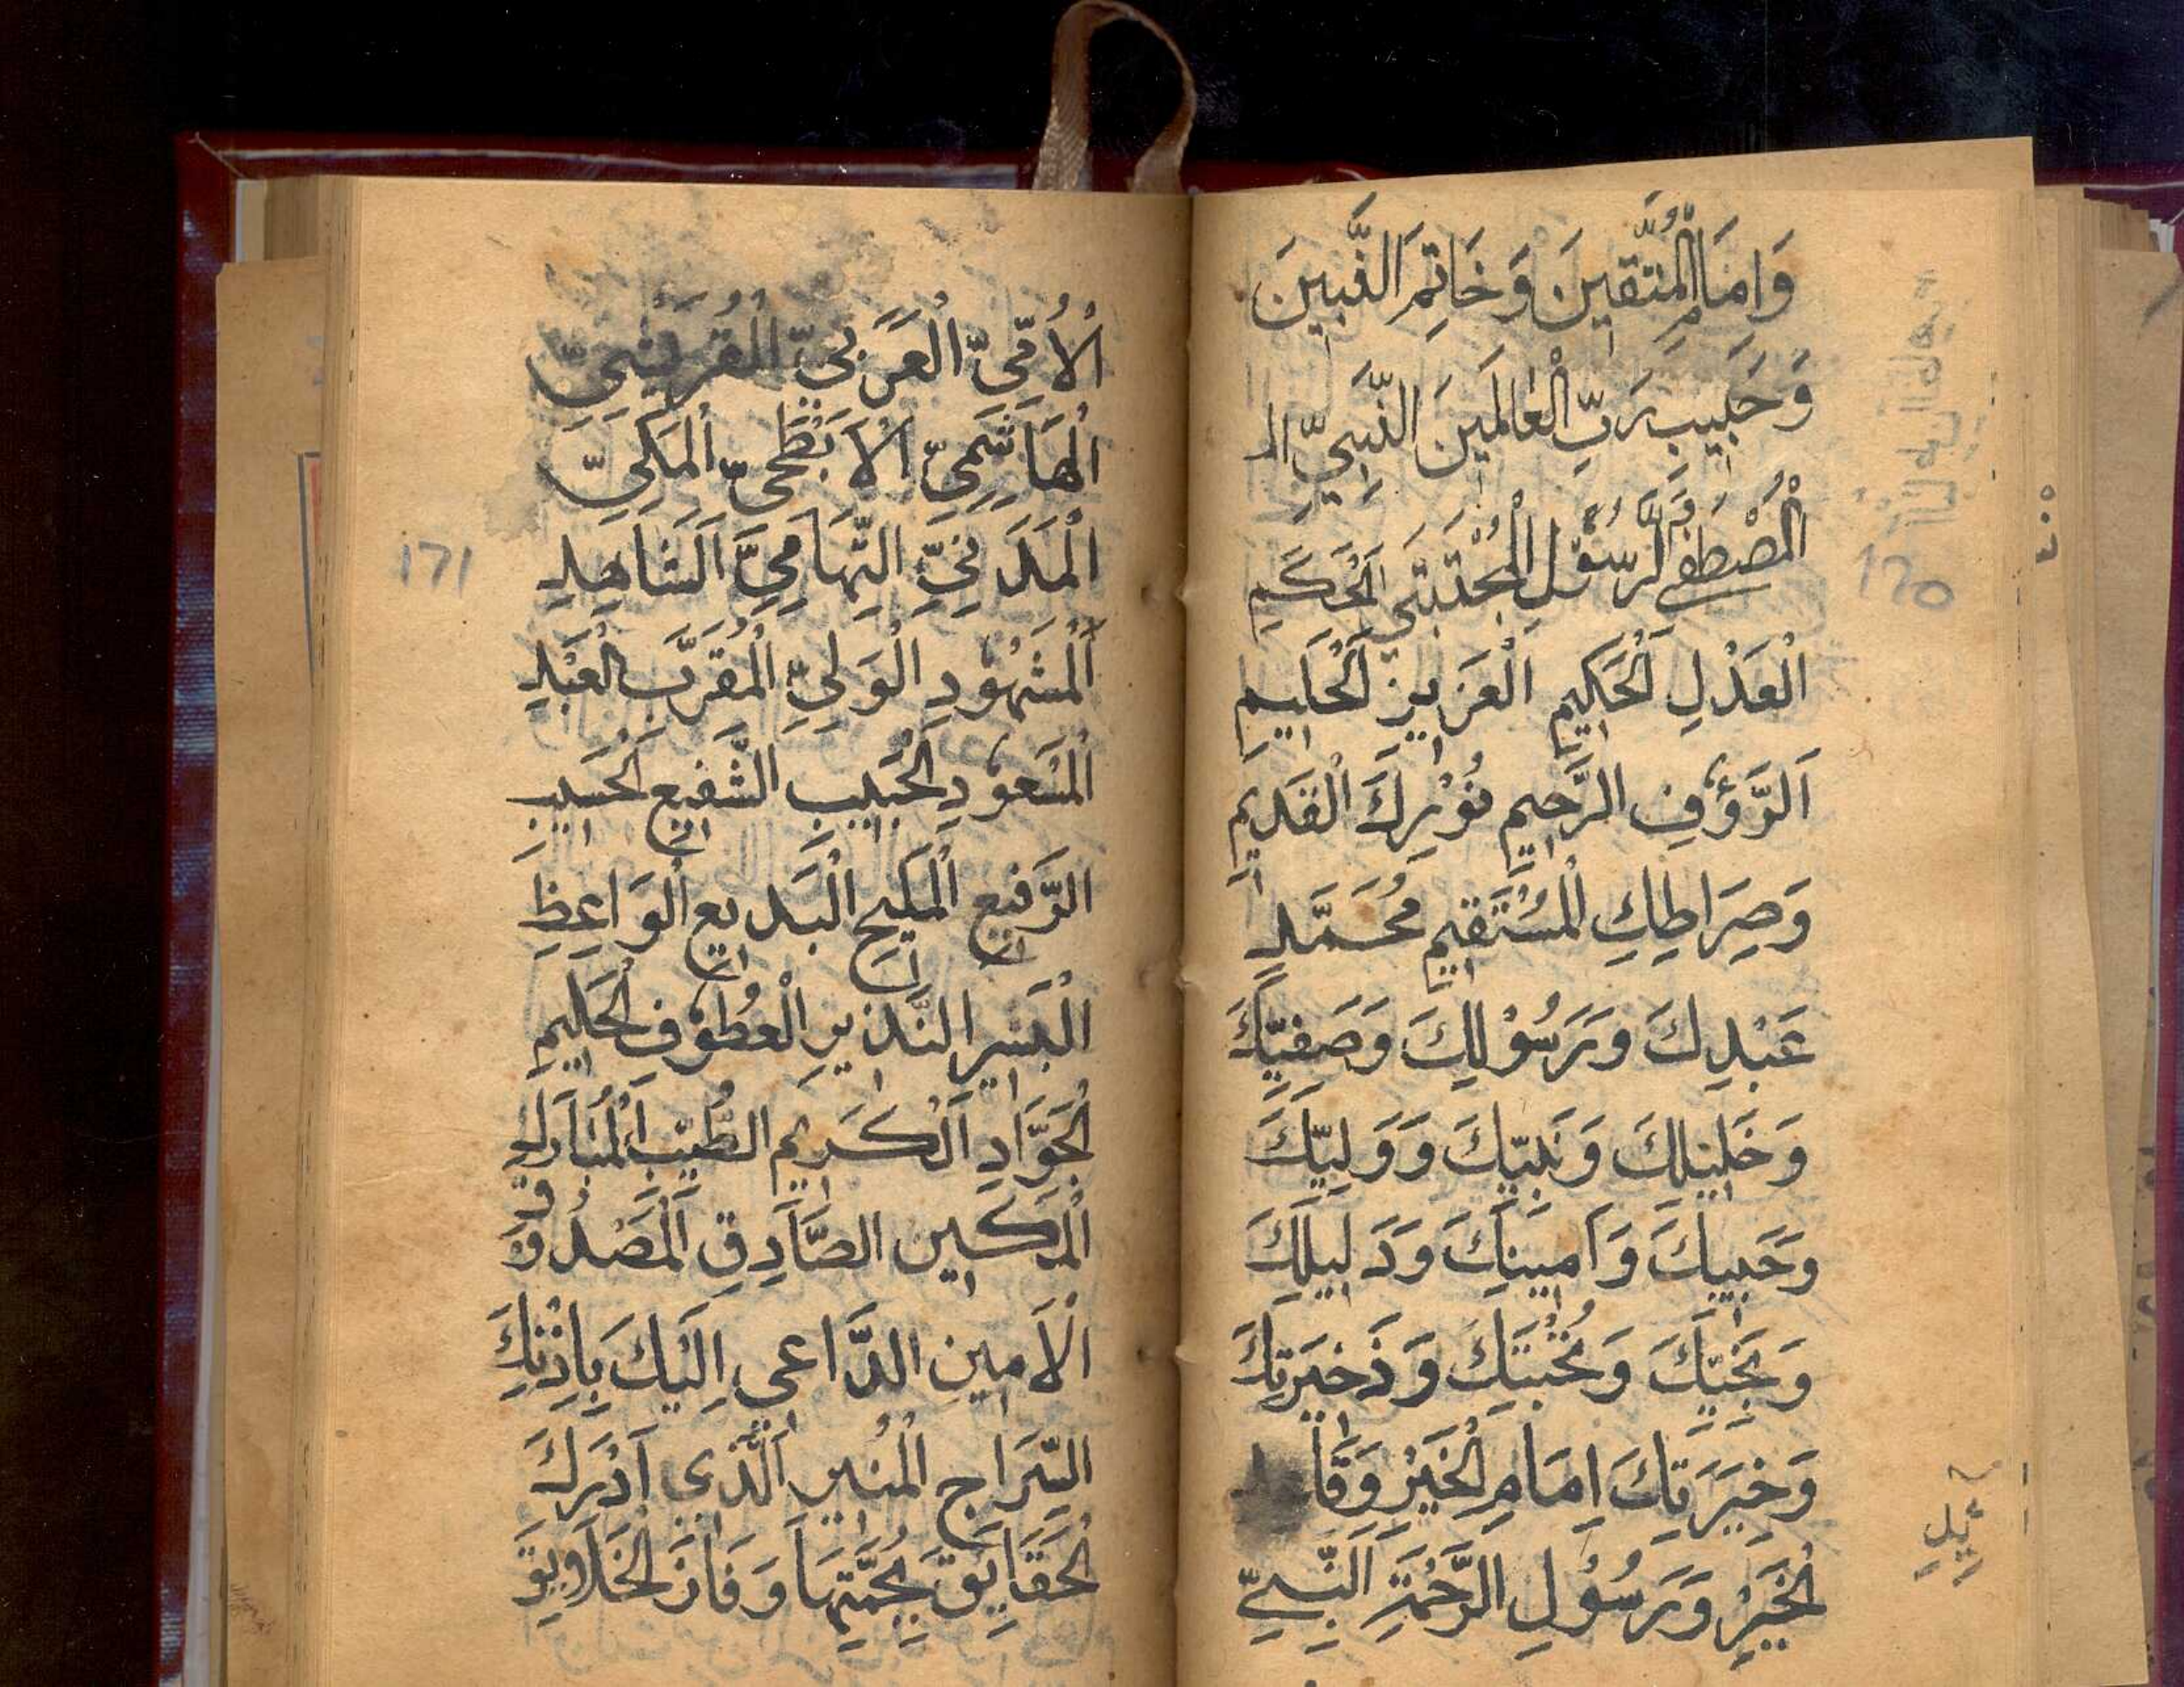 وَاِمَامِ الْمُتَّقِينَ وَخَاتِمِ النَّبِيِينَ
وَحَبِيبِ رَبِّ الْعٰالَمِينَ النَّبِيِّ الـ
الْمُصْطَفٰى الرَّسُوْلِ الْمُجْتَبٰى الْحَكَمِ
الْعَدْلِ الْحَكِيمِ الْعَزِيزِ الْحَلِيمِ
اَلرَّؤُفِ الرَّحِيمِ نُوْرِكَ الْقَدِيمِ
وَصِرَاطِكِ الْمُسْتَقِيمِ مُحَمَّدٍ
عَبْدِكَ وَرَسُوْلِكَ وَصَفِيِّكَ
وَخَلِيلِكَ وَنَبِيِّكَ وَوَلِيِّكَ
وَحَبِيبِكَ وَاَمِينِكَ وَدَلِيلِكَ
وَنَجِيِّكَ وَنُخْبَتِكَ وَذَخِيرَتِكَ
وَخِيَرَتِكَ اِمَامِ الْخَيْرِ وَقَا
الْخَيْرِ وَرَسُوْلِ الرَّحْمَةِ النَّبِيِّ
125
الْاُمِّيِّ الْعَرَبِيِّ الْقُرَيْشِيِّ
الْهَاشِمِيِّ الْاَبْطَحِيِّ الْمَكِيِّ
الْمَدَنِيِّ التِّهَامِيِّ الشَاهِدِ
الْمَشْهُوْدِ الْوَلِيِّ الْمُقَرَّبِ الْعَبْدِ
الْمَسْعُوْدِ الْحَبِيبِ الشَّفِيعِ الْحَسِيبِ
الرَّفِيعِ الْمَلِيحِ الْبَدِيعِ الْوَاعِظِ
الْبَشِيرِ النَّذِيرِ الْعَطُوْفِ الْحَلِيمِ
الْجَوَّادِ اَلْكَرِيمِ الطَّيِّبِ الْمُبَارَكِ
الْمَكِينِ الصَّادِقِ الْمَصْدُوْقِ
الْاَمِينِ الدَّاعِى اِلَيْكَ بِاِذْنِكَ
السِّرَاجِ الْمُنِيرِ الَّذِى اَدْرَكَ
الْحَقَايِقَ بِحُجَّتِهَا وَفَازَ الْخَلَايِقَ
171